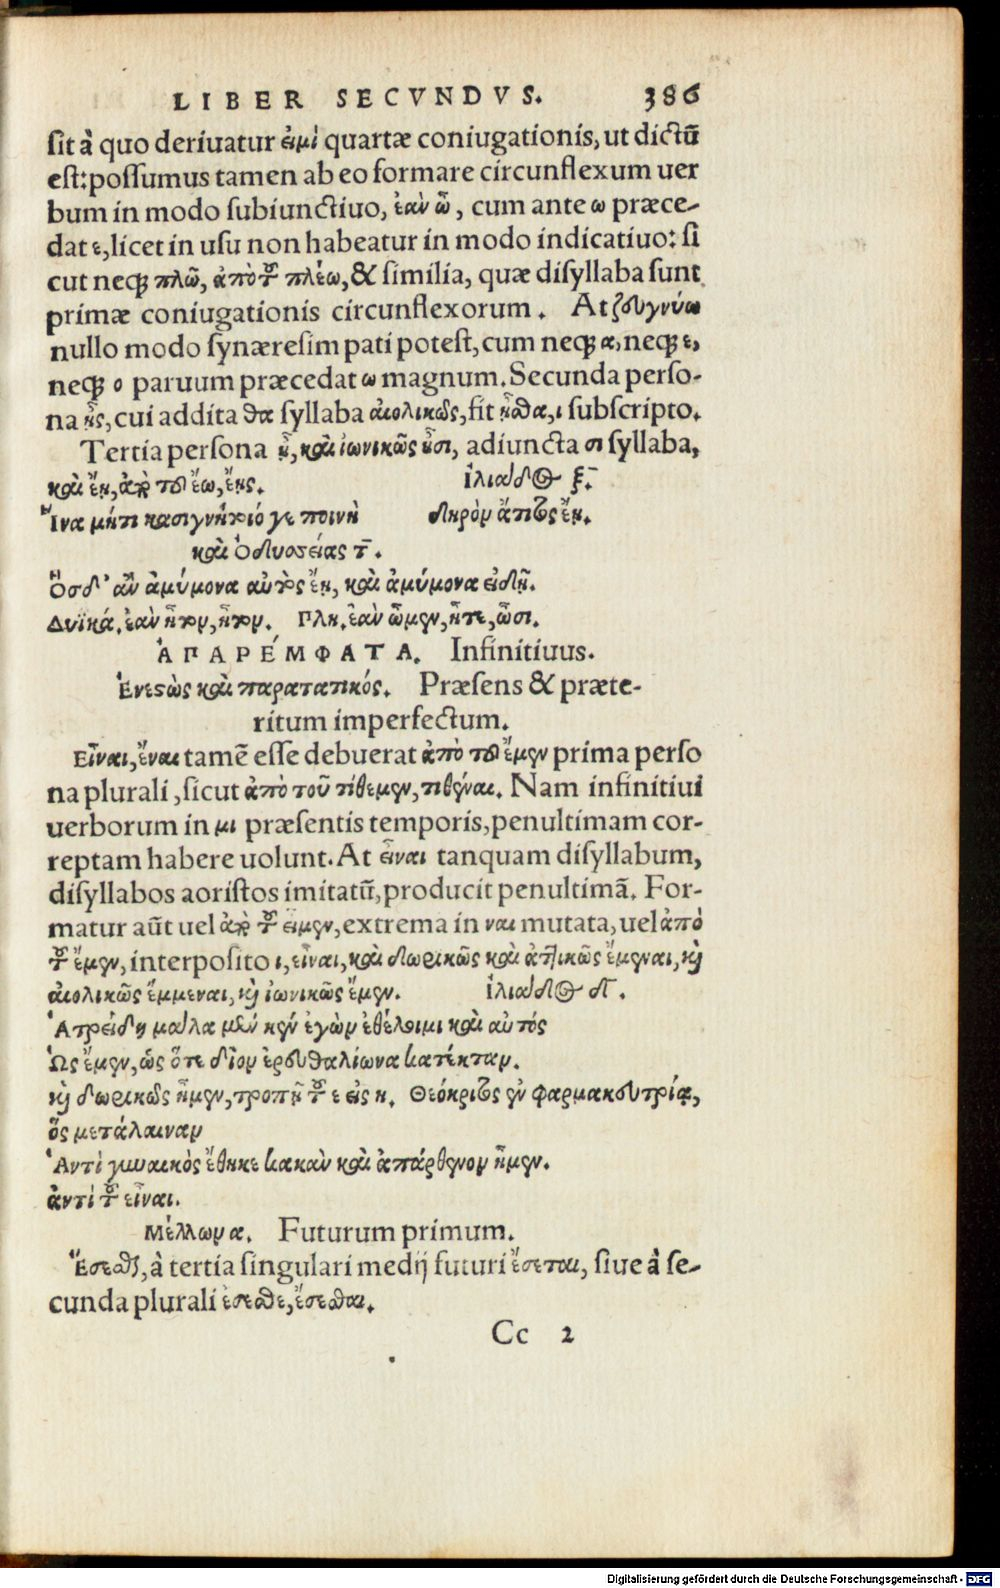 LIBER SECVNDVS. 386
sit à quo deriuatur εἰμὶ quartæ coniugationis, ut dictũ
est: possumus tamen ab eo formare circunflexum uer
bum in modo subiunctiuo, ἐὰν ὦ, cum ante ω præce-
dat ε, licet in usu non habeatur in modo indicatiuo: si
cut neq; πλῶ, ἀπὸ τοῦ πλέω, & similia, quæ disyllaba sunt
primæ coniugationis circunflexorum. At ζευγνύω
nullo modo synæresim pati potest, cum neq; α, neq; ε,
neq; ο paruum præcedat ω magnum. Secunda perso-
na ᾖς, cui addita θα syllaba αἰολικῶς, fit ᾖσθα, ι subscripto.
Tertia persona ᾖ, καὶ ἰωνικῶς ᾖσι, adiuncta σι syllaba,
καὶ ἔῃ, ἀπὸ τοῦ ἔω, ἔῃς. ἰλιάδος ξ̄.
Ἵνα μήτι κασιγνήτοιό γε ποινὴ δηρὸν ἄτιτος ἔῃ.
καὶ Ὀδυσσείας τ̄.
Ὃς δ' ἂν ἀμύμονα αὐτὸς ἔῃ, καὶ ἀμύμονα εἰδῇ.
Δυϊκά. ἐὰν ἦτον, ἦτον. Πλη. ἐὰν ὦμεν, ἦτε, ὦσι.
ἈΠΑΡΈΜΦΑΤΑ. Infinitiuus.
Ἐνεστὼς καὶ παρατατικός. Præsens & præte-
ritum imperfectum.
Εἶναι, ἔναι tamẽ esse debuerat ἀπὸ τοῦ ἔμεν prima perso
na plurali, sicut ἀπὸ τοῦ τίθεμεν, τιθέναι. Nam infinitiui
uerborum in μι præsentis temporis, penultimam cor-
reptam habere uolunt. At εἶναι tanquam disyllabum,
disyllabos aoristos imitatũ, producit penultimã. For-
matur aũt uel ἀπὸ τοῦ εἰμεν, extrema in ναι mutata, uel ἀπὸ
τοῦ ἔμεν, interposito ι, εἶναι, καὶ δωρικῶς καὶ ἀττικῶς ἔμεναι, καὶ
αἰολικῶς ἔμμεναι, καὶ ἰωνικῶς ἔμεν. ἰλιάδος δ̄.
Ἀτρείδη μάλα μέν κεν ἐγὼν ἐθέλοιμι καὶ αὐτός
Ὣς ἔμεν, ὡς ὅτε δῖον ἐρευθαλίωνα κατέκταν.
καὶ δωρικῶς ἦμεν, τροπῇ τοῦ ε εἰς η. Θεόκριτος ἐν φαρμακευτρίᾳ,
ὅς με τάλαιναν
Ἀντὶ γυναικὸς ἔθηκε κακὰν καὶ ἀπάρθενον ἦμεν.
ἀντὶ τοῦ εἶναι.
Μέλλων α. Futurum primum.
Ἔσεσθαι, à tertia singulari medij futuri ἔσεται, siue à se-
cunda plurali ἔσεσθε, ἔσεσθαι.
Cc 2
Digitalisierung gefördert durch die Deutsche Forschungsgemeinschaft - DFG